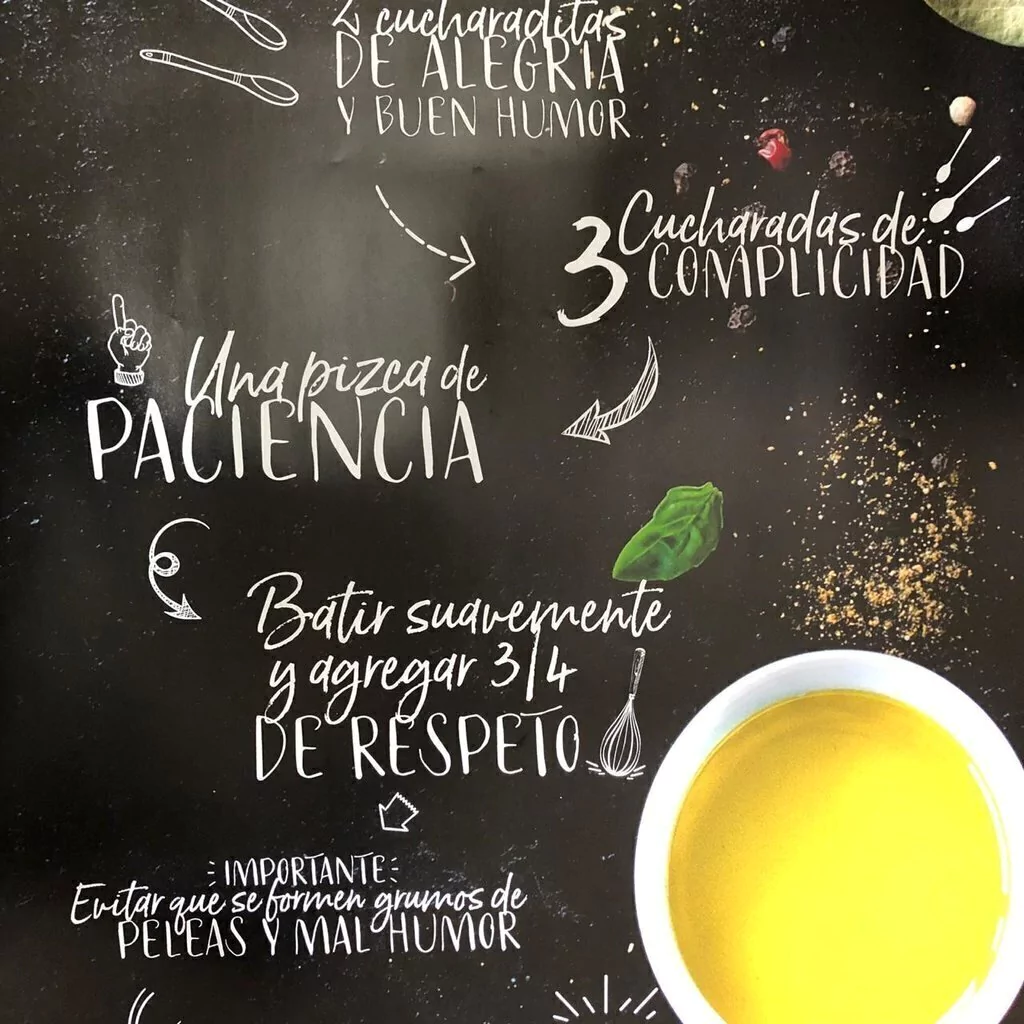 2 cucharaditas
DE ALEGRÍA
Y BUEN HUMOR
3 Cucharadas de
COMPLICIDAD
Una pizca de
PACIENCIA
Batir suavemente
y agregar 3/4
DE RESPETO
IMPORTANTE:
Evitar que se formen grumos de
PELEAS Y MAL HUMOR